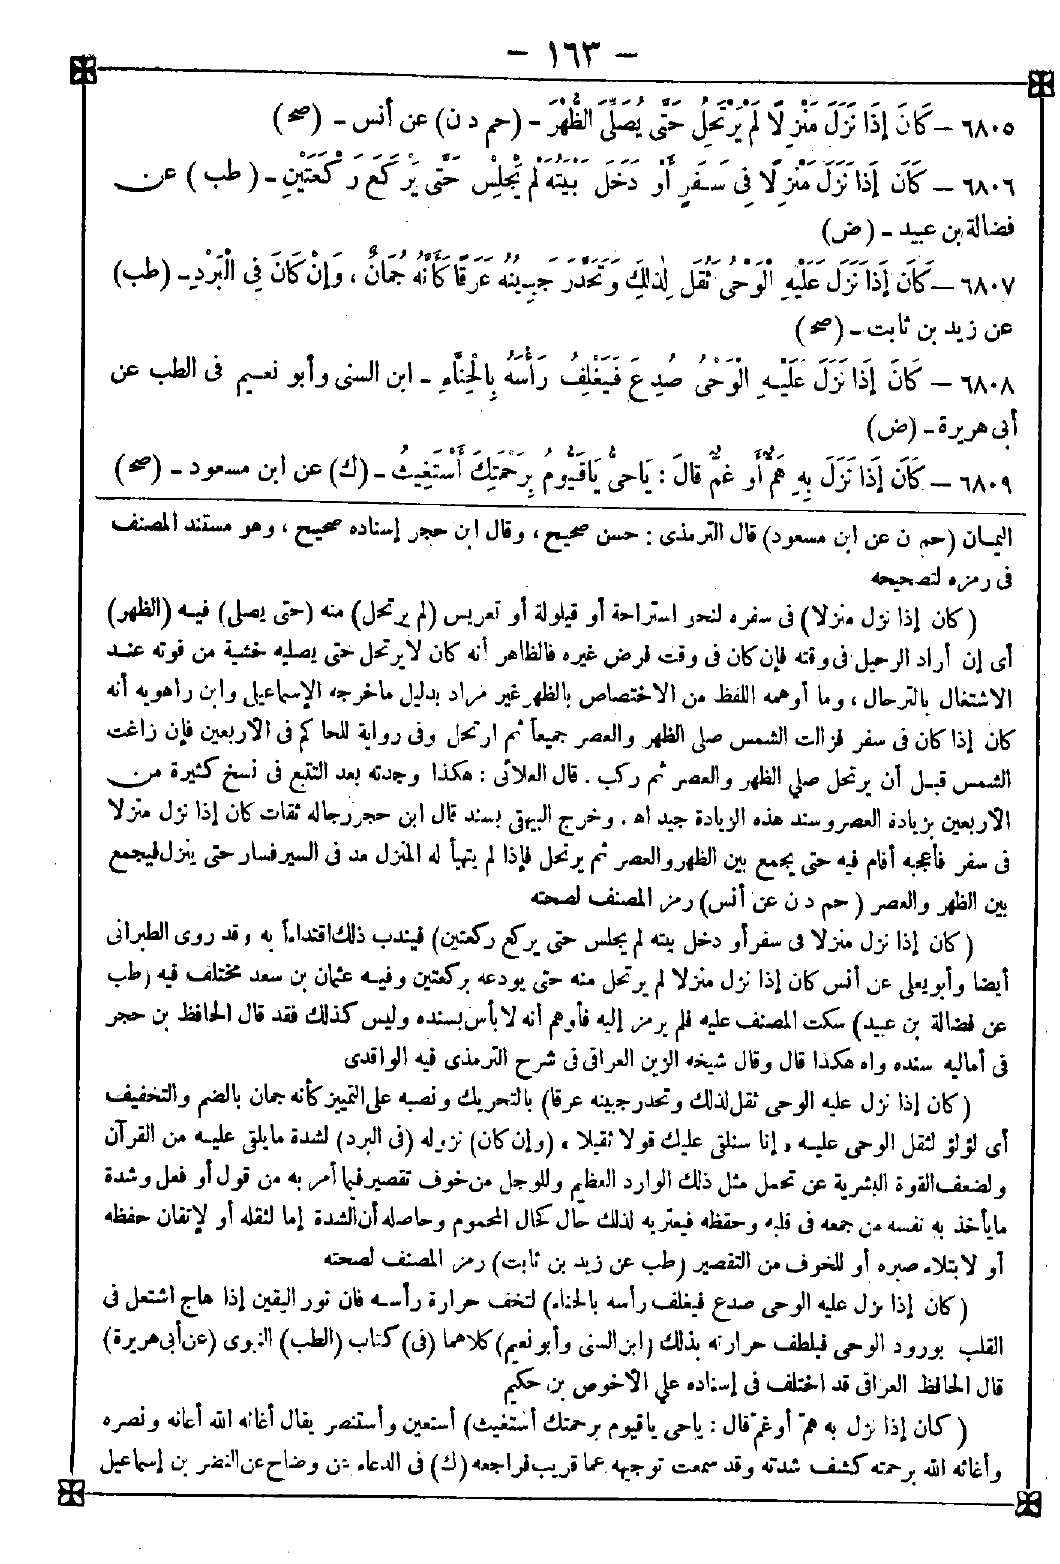 – ١٦٣ –
٦٨٠٥ – كَانَ إِذَا نَزَلَ مَنْزِلًا لَمْ يَرْتَحِلْ حَتَّى يُصَلِّىَ الظُّهْرَ – (حم د ن) عن أنس – (صح)
٦٨٠٦ – كَانَ إِذَا نَزَلَ مَنْزِلًا فِى سَفَرٍ أَوْ دَخَلَ بَيْتَهُ لَمْ يَجْلِسْ حَتَّى يَرْكَعَ رَكْعَتَيْنِ – (طب) عن
فضالة بن عبيد – (ض)
٦٨٠٧ – كَانَ إِذَا نَزَلَ عَلَيْهِ الْوَحْىُ ثَقُلَ لِذٰلِكَ وَتَحَدَّرَ جَبِينُهُ عَرَقًا كَأَنَّهُ جُمَانٌ ، وَإِنْ كَانَ فِى الْبَرْدِ – (طب)
عن زيد بن ثابت – (صح)
٦٨٠٨ – كَانَ إِذَا نَزَلَ عَلَيْهِ الْوَحْىُ صُدِعَ فَيُغَلِّفُ رَأْسَهُ بِالْحِنَّاءِ – ابن السنى وأبو نعيم فى الطب عن
أبى هريرة – (ض)
٦٨٠٩ – كَانَ إِذَا نَزَلَ بِهِ هَمٌّ أَوْ غَمٌّ قَالَ : يَاحَىُّ يَاقَيُّومُ بِرَحْمَتِكَ أَسْتَغِيثُ – (ك) عن ابن مسعود – (صح)
اليمان (حم ن عن ابن مسعود) قال الترمذى : حسن صحيح ، وقال ابن حجر إسناده صحيح ، وهو مستند المصنف
فى رمزه لتصحيحه
(كان إذا نزل منزلا) فى سفره لنحو استراحة أو قيلولة أو تعريس (لم يرتحل) منه (حتى يصلى) فيه (الظهر)
أى إن أراد الرحيل فى وقته فإن كان فى وقت فرض غيره فالظاهر أنه كان لا يرتحل حتى يصليه خشية من فوته عند
الاشتغال بالترحال ، وما أوهمه اللفظ من الاختصاص بالظهر غير مراد بدليل ماخرجه الإسماعيلى وابن راهويه أنه
كان إذا كان فى سفر فزالت الشمس صلى الظهر والعصر جميعاً ثم ارتحل وفى رواية للحاكم فى الأربعين فإن زاغت
الشمس قبل أن يرتحل صلى الظهر والعصر ثم ركب . قال العلائى : هكذا وجدته بعد التتبع فى نسخ كثيرة من
الأربعين بزيادة العصر وسند هذه الزيادة جيد اه . وخرج البيهقى بسند قال ابن حجر رجاله ثقات كان إذا نزل منزلا
فى سفر فأعجبه أقام فيه حتى يجمع بين الظهر والعصر ثم يرتحل فإذا لم يتهيأ له المنزل مد فى السير فسار حتى ينزل فيجمع
بين الظهر والعصر (حم د ن عن أنس) رمز المصنف لصحته
(كان إذا نزل منزلا فى سفر أو دخل بيته لم يجلس حتى يركع ركعتين) فيندب ذلك اقتداءاً به وقد روى الطبرانى
أيضا وأبو يعلى عن أنس كان إذا نزل منزلا لم يرتحل منه حتى يودعه بركعتين وفيه عثمان بن سعد مختلف فيه (طب
عن فضالة بن عبيد) سكت المصنف عليه فلم يرمز إليه فأوهم أنه لا بأس بسنده وليس كذلك فقد قال الحافظ بن حجر
فى أماليه سنده واه هكذا قال وقال شيخه الزين العراقى فى شرح الترمذى فيه الواقدى
(كان إذا نزل عليه الوحى ثقل لذلك وتحدر جبينه عرقا) بالتحريك ونصبه على التمييز كأنه جمان بالضم والتخفيف
أى لؤلؤ لثقل الوحى عليه ، إنا سنلقى عليك قولا ثقيلا ، (وإن كان) نزوله (فى البرد) لشدة ما يلقى عليه من القرآن
ولضعف القوة البشرية عن تحمل مثل ذلك الوارد العظيم وللوجل من خوف تقصير فيما أمر به من قول أو فعل وشدة
مايأخذ به نفسه من جمعه فى قلبه وحفظه فيعتريه لذلك حال كحال المحموم وحاصله أن الشدة إما لثقله أو لإتقان حفظه
أو لابتلاء صبره أو للخوف من التقصير (طب عن زيد بن ثابت) رمز المصنف لصحته
(كان إذا نزل عليه الوحى صدع فيغلف رأسه بالحناء) لتخف حرارة رأسه فان نور اليقين إذا هاج اشتعل فى
القلب بورود الوحى فيلطف حرارته بذلك (ابن السنى وأبو نعيم) كلاهما (فى) كتاب (الطب) النبوى (عن أبى هريرة)
قال الحافظ العراقى قد اختلف فى إسناده على الأخوص بن حكيم
(كان إذا نزل به همّ أو غمّ قال : ياحى ياقيوم برحمتك أستغيث) أستعين وأستنصر يقال أغاثه الله أعانه ونصره
وأغاثه الله برحمته كشف شدته وقد سمعت توجيهه عما قريب فراجعه (ك) فى الدعاء عن وضاح عن النضر بن إسماعيل